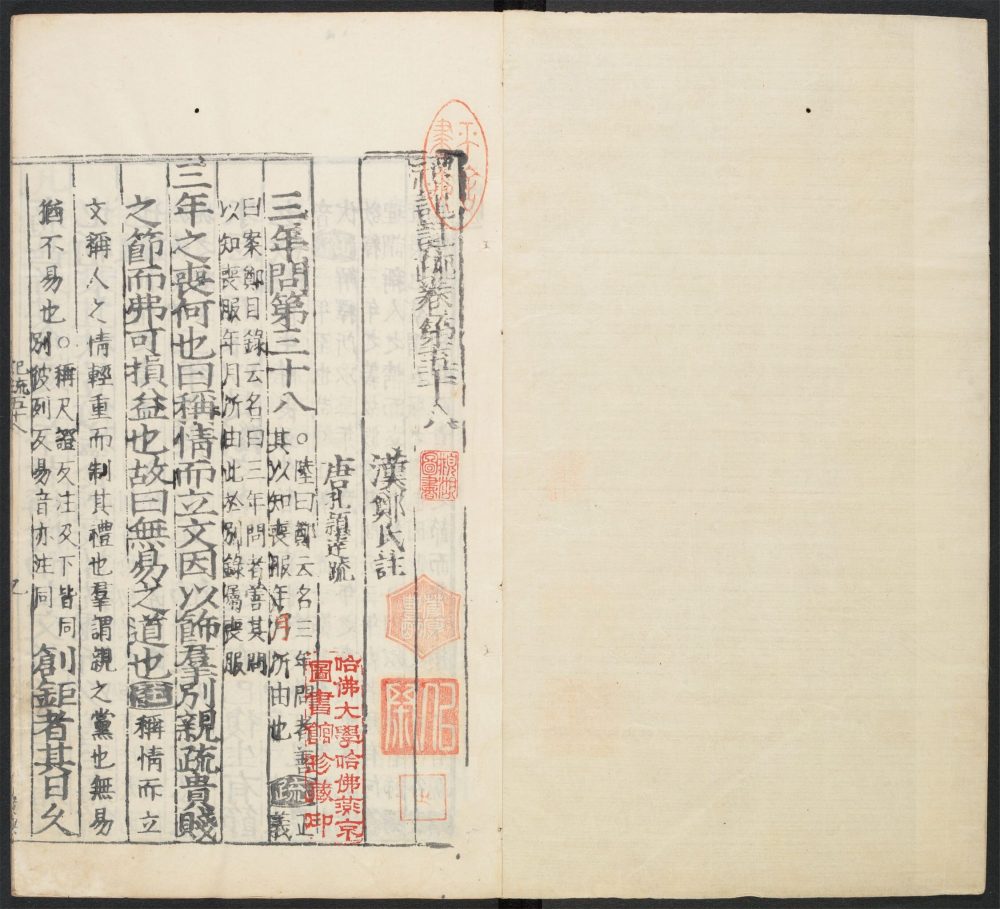 禮記註疏卷第五十八
漢鄭氏註
唐孔穎達疏
三年問第三十八 ○陸曰鄭云名三年問者善
其以知喪服年月所由也 疏 正義
曰案鄭目錄云名曰三年問者善其問
以知喪服年月所由此於別錄屬喪服
三年之喪何也曰稱情而立文因以飾羣別親疏貴賤
之節而弗可損益也故曰無易之道也 註 稱情而立
文稱人之情輕重而制其禮也羣謂親之黨也無易
猶不易也 ○稱尺證反注及下皆同
別彼列反易音亦注同 創鉅者其日久
記疏五十八
哈佛大學哈佛燕京
圖書館珍藏印